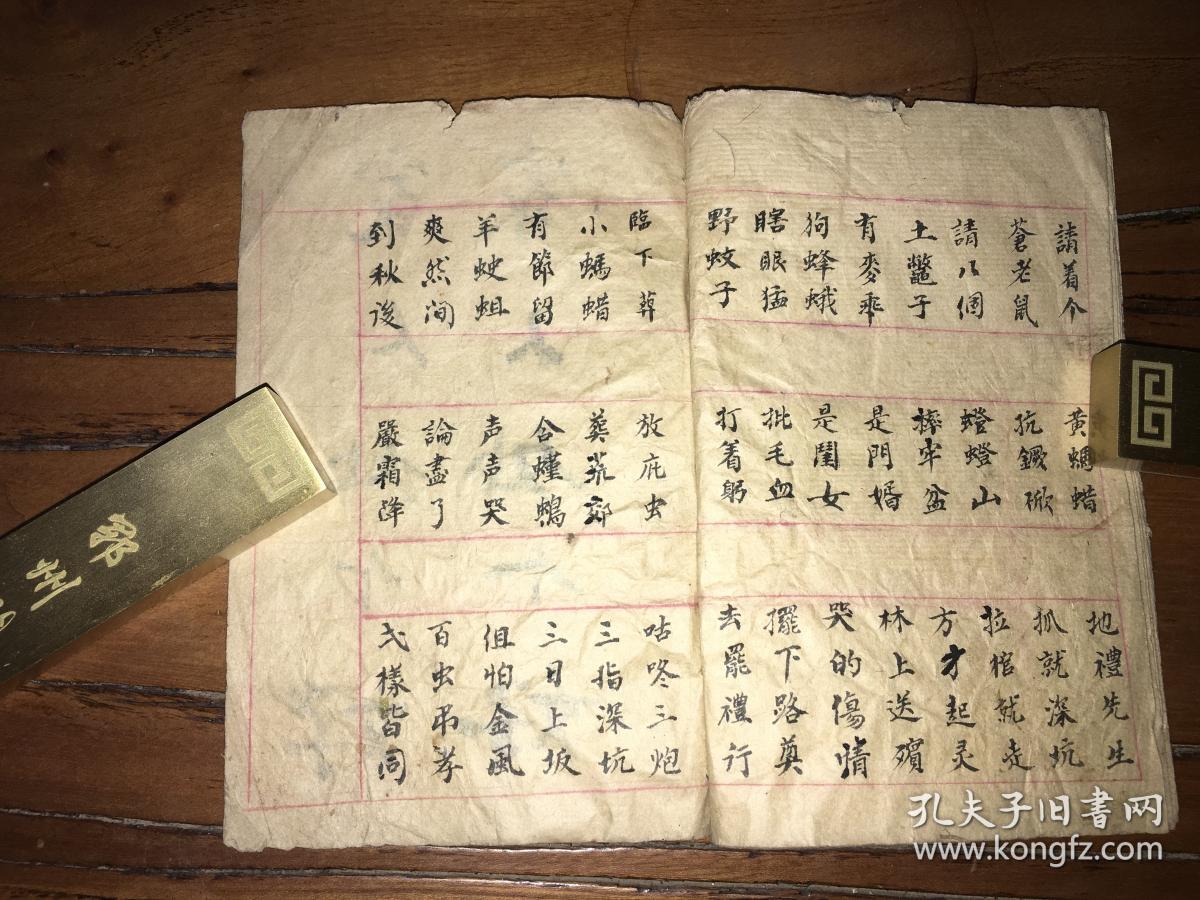 請着个 黄蜩蜡 地禮先生
蒼老鼠 抗鐝锨 抓就深坑
請几個 蹬蹬山 拉棺就走
土鼈子 摔牢盆 方才起灵
有麥乖 是門婿 林上送殯
狗蜂蛾 是閨女 哭的傷情
瞎眼猛 批毛血 擺下路奠
野蚊子 打着躬 去罷禮行
臨下葬 放庇虫 咕咚三炮
小螞蜡 葬荒郊 三指深坑
有節留 合 三日上坂
羊蚰蛆 声声哭 但怕金風
爽然间 論盡了 百虫吊孝
到秋後 嚴霜降 弌樣皆同
孔夫子旧书网
www.kongfz.com